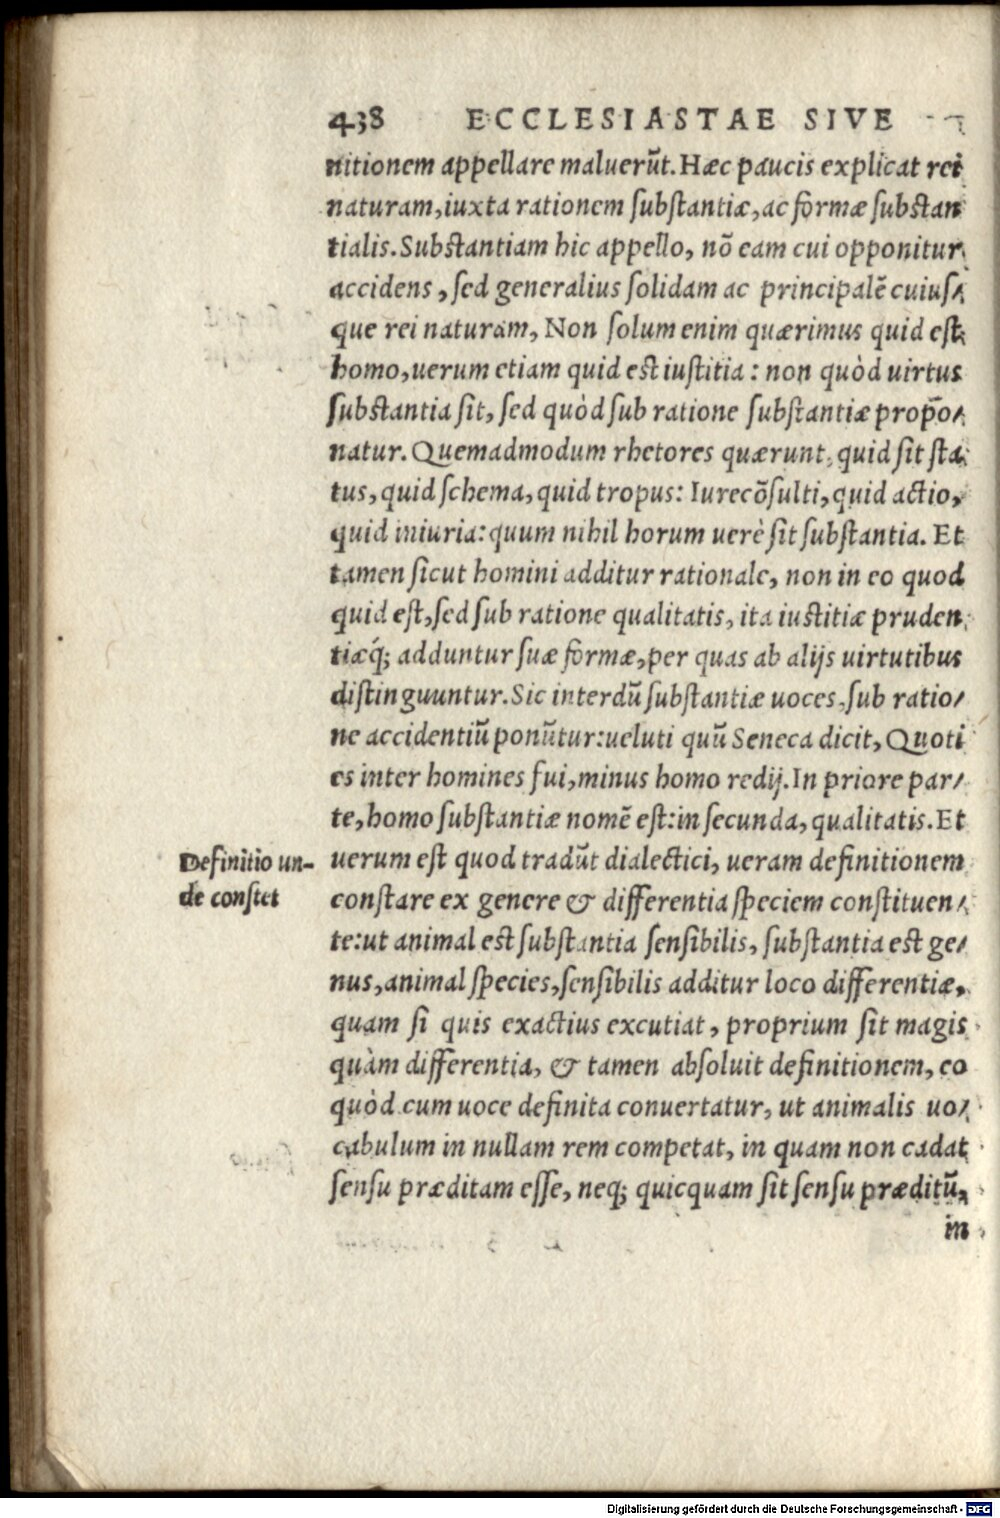 438 ECCLESIASTAE SIVE
nitionem appellare maluerũt. Hæc paucis explicat rei
naturam, iuxta rationem ſubſtantiæ, ac formæ ſubſtan
tialis. Subſtantiam hic appello, nõ eam cui opponitur
accidens, ſed generalius ſolidam ac principalẽ cuiuſ/
que rei naturam, Non ſolum enim quærimus quid eſt
homo, uerum etiam quid eſt iuſtitia : non quòd uirtus
ſubſtantia ſit, ſed quòd ſub ratione ſubſtantiæ propõ/
natur. Quemadmodum rhetores quærunt, quid ſit ſta
tus, quid ſchema, quid tropus: Iurecõſulti, quid actio,
quid iniuria: quum nihil horum uerè ſit ſubſtantia. Et
tamen ſicut homini additur rationale, non in eo quod
quid eſt, ſed ſub ratione qualitatis, ita iuſtitiæ pruden
tiæq́; adduntur ſuæ formæ, per quas ab alijs uirtutibus
diſtinguuntur. Sic interdũ ſubſtantiæ uoces, ſub ratio/
ne accidentiũ ponũtur: ueluti quũ Seneca dicit, Quoti
es inter homines fui, minus homo redij. In priore par/
te, homo ſubſtantiæ nomẽ eſt: in ſecunda, qualitatis. Et
Definitio un-
de conſtet
uerum eſt quod tradũt dialectici, ueram definitionem
conſtare ex genere & differentia ſpeciem conſtituen/
te: ut animal eſt ſubſtantia ſenſibilis, ſubſtantia eſt ge/
nus, animal ſpecies, ſenſibilis additur loco differentiæ,
quam ſi quis exactius excutiat, proprium ſit magis
quàm differentia, & tamen abſoluit definitionem, eo
quòd cum uoce definita conuertatur, ut animalis uo/
cabulum in nullam rem competat, in quam non cadat
ſenſu præditam eſſe, neq; quicquam ſit ſenſu præditũ,
in
Digitalisierung gefördert durch die Deutsche Forschungsgemeinschaft - DFG